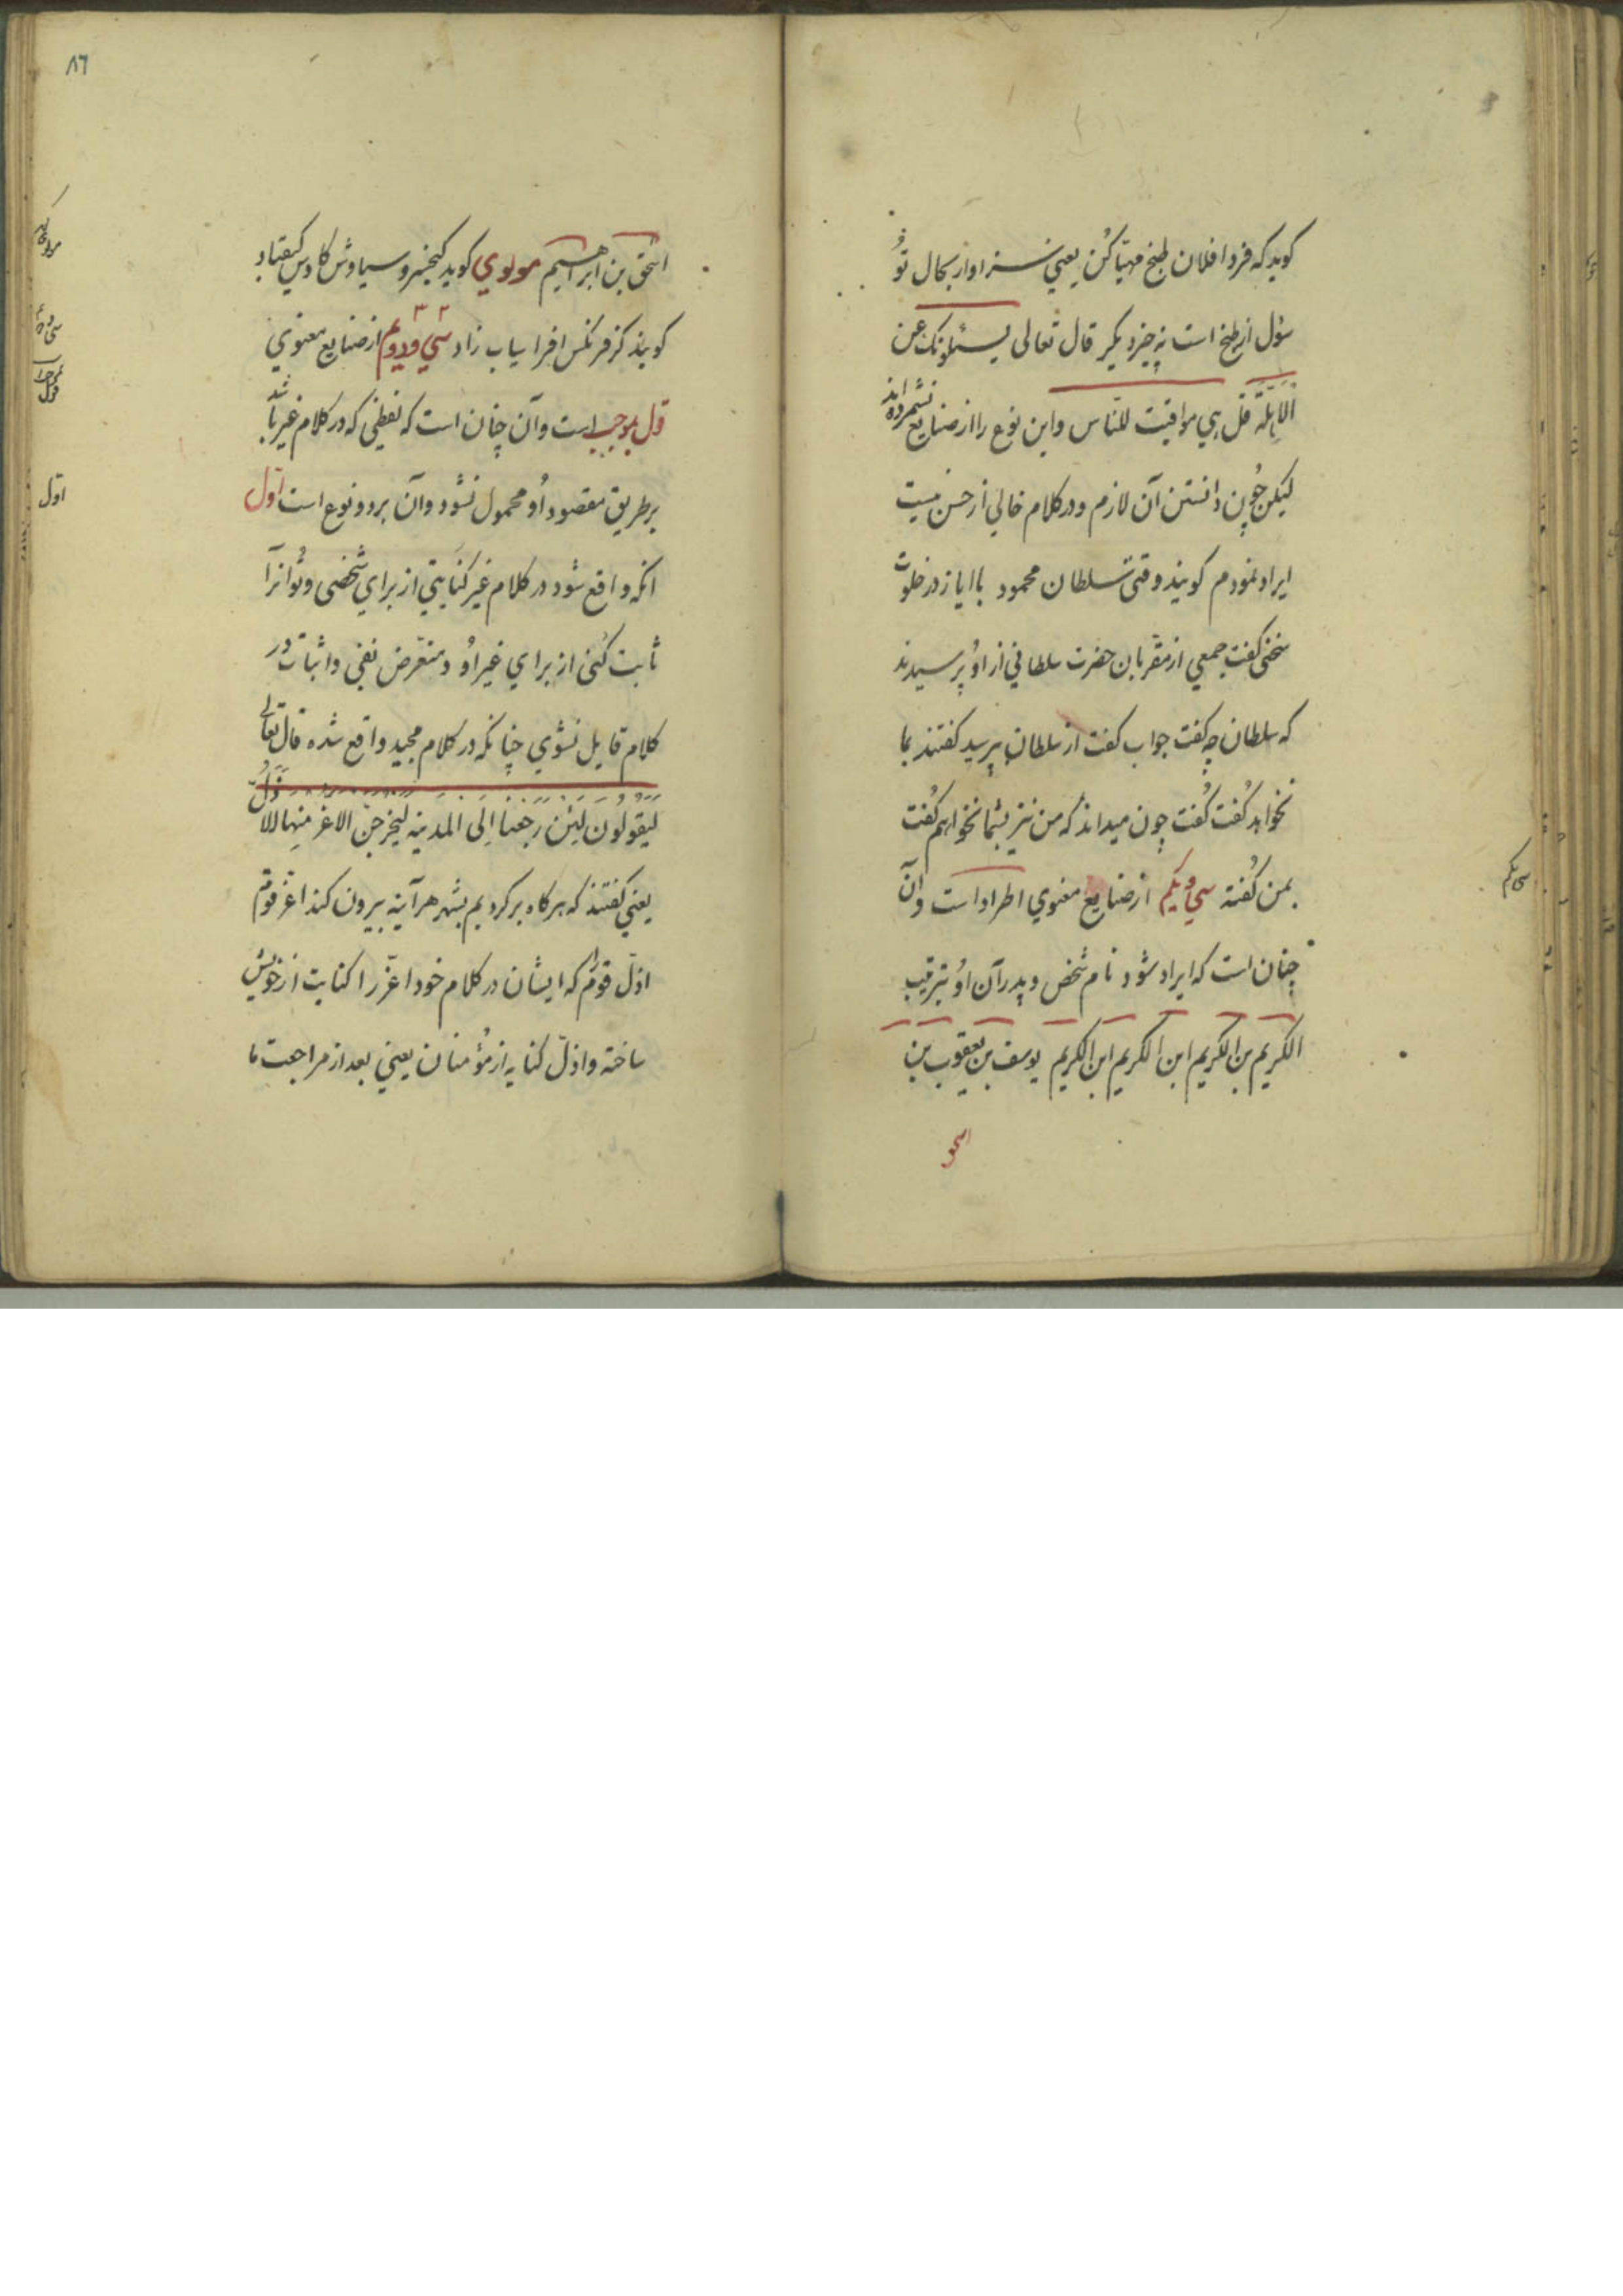 کوید که فردا فلان طبخ مهیّا کن یعنی سزاوار بحال تو
سؤل از طبخ است نه چیز دیکر قال تعالی یسئلونک عن
الاهلّة قل هی مواقیت للنّاس و این نوع را از صنایع نشمرده اند
لیکن چون دانستن آن لازم و در کلام خالی از حسن نیست
ایراد نمودم کویند وقتی سلطان محمود با ایاز در خلوت
سخنی کفت جمعی از مقربان حضرت سلطانی از او پرسیدند
که سلطان چه کفت جواب کفت از سلطان بپرسید کفتند بما
نخواهد کفت کفت چون میداند که من نیز بشما نخواهم کفت
بمن کفته سی و یکم از صنایع معنوی اطراد است و آن
چنان است که ایراد شود نام شخص و پدر آن او بترتیب
الکریم بن الکریم ابن الکریم ابن الکریم یوسف بن یعقوب بن
اسحق
سی یکم
٨٦
اسحق بن ابراهیم مولوی کوید کیخسرو سیاوش کاوس کیقباد
کویند کز فرنکس افراسیاب زاد سی و دویم از صنایع معنوی
قول بموجب است و آن چنان است که لفظی که در کلام غیر باشد
بر طریق مقصود او محمول نشود و آن بر دو نوع است اول
انکه واقع شود در کلام غیر کنایتی از برای شخصی و تو انرا
ثابت کنی از برای غیر او و متعرض نفی و اثبات در
کلام قایل نشوی چنانکه در کلام مجید واقع شده قال تعالی
لیقولون لئن رجعنا الی المدینه لیخرجن الاعز منها الاذل
یعنی کفتند که هر کاه بر کردیم بشهر هر آینه بیرون کند اعز قوم
اذلّ قوم را که ایشان در کلام خود اعزّ را کنایت از خویش
ساخته و اذلّ کنایه از مؤمنان یعنی بعد از مراجعت ما
مولوی
اول